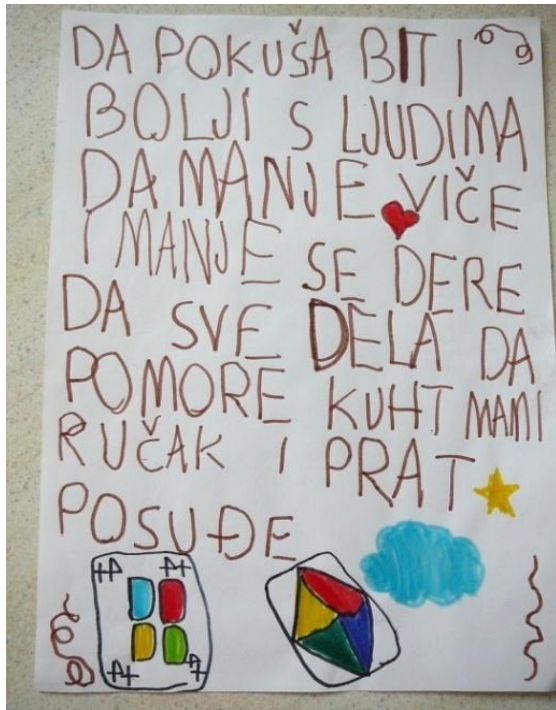 DA POKUŠA BITI
BOLJI S LJUDIMA
DA MANJE VIČE
I MANJE SE DERE
DA SVE DELA DA
POMORE KUHT MAMI
RUČAK I PRAT
POSUĐE
+4 +4
+4 +4